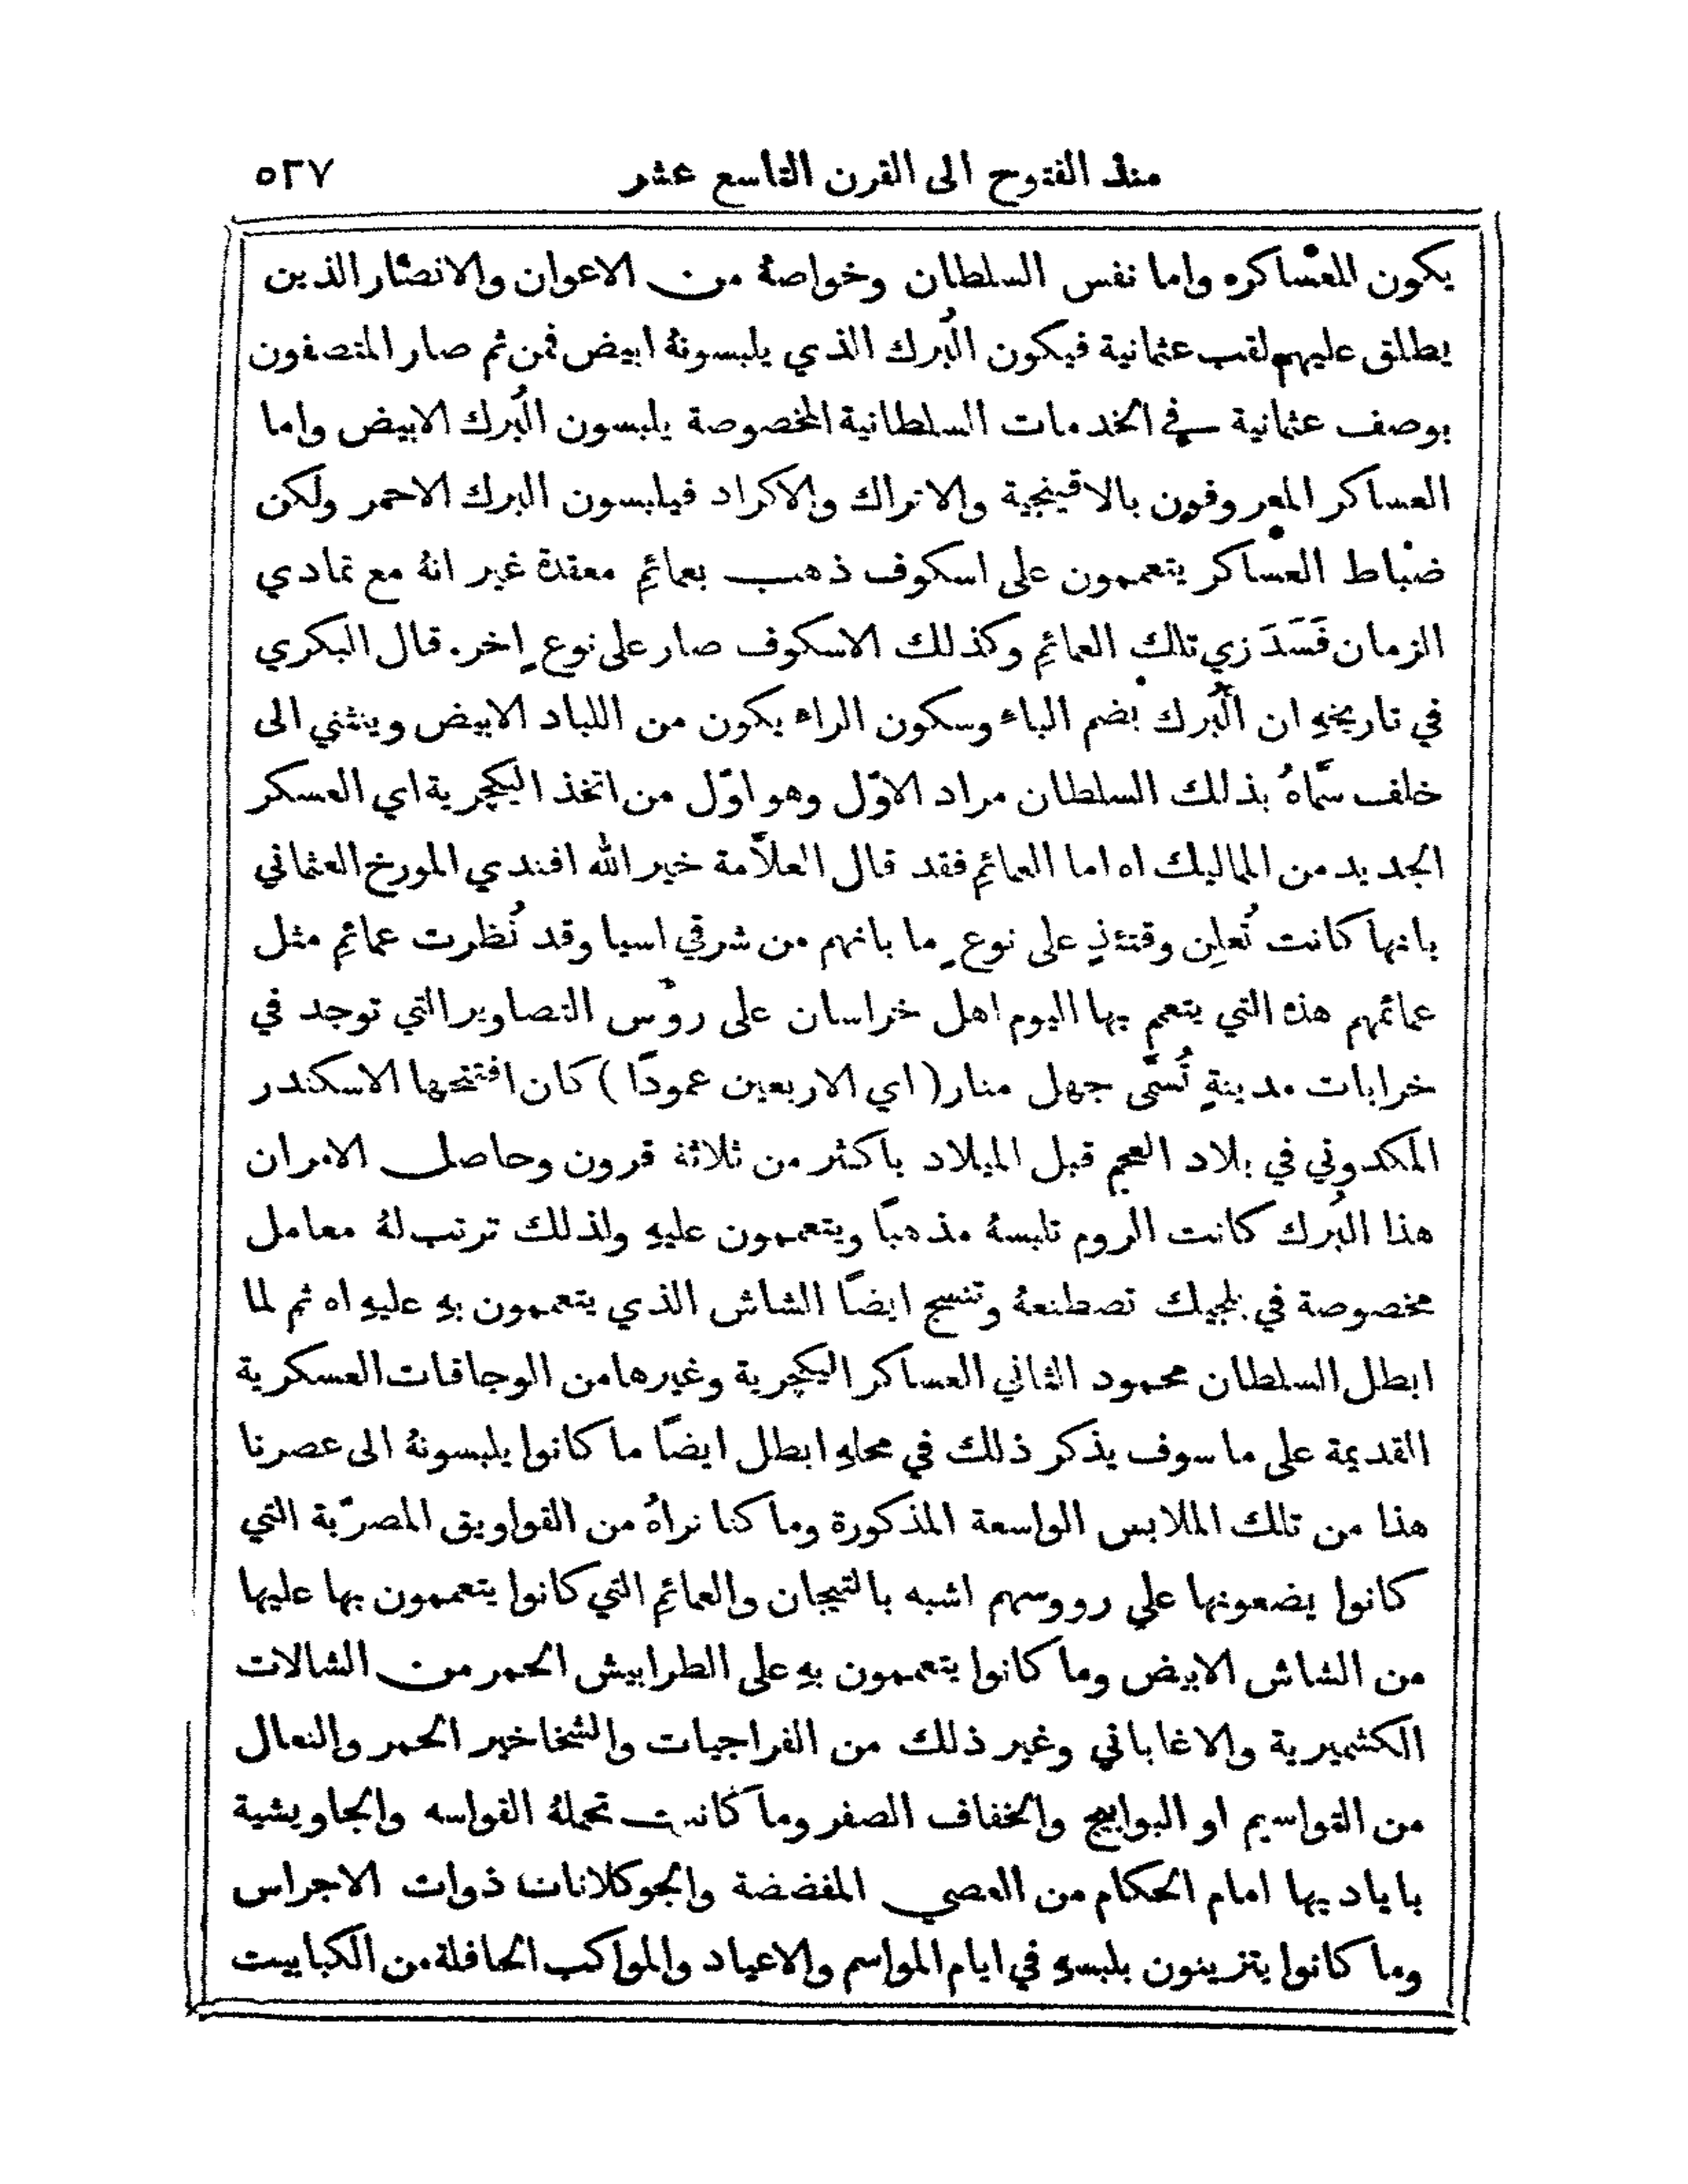 منذ الفتوح الى القرن التاسع عشر ٥٢٧
يكون للعساكره واما نفس السلطان وخواصهُ من الاعوان والانصار الذين
يطلق عليهم لقب عثمانية فيكون البُرك الذي يلبسونهُ ابيض فمن ثم صار المتصفون
بوصف عثمانية في الخدمات السلطانية المخصوصة يلبسون البُرك الابيض واما
العساكر المعروفون بالاقينجية والاتراك والاكراد فيلبسون البرك الاحمر ولكن
ضباط العساكر يتعممون على اسكوف ذهب بعمائمِ معقدة غير انهُ مع تمادي
الزمان فَسَدَ زي تلك العمائمِ وكذلك الاسكوف صار على نوعٍ اخر. قال البكري
في تاريخهِ ان البُرك بضم الباء وسكون الراء يكون من اللباد الابيض وينثني الى
خلف سمَّاهُ بذلك السلطان مراد الاوّل وهو اوّل من اتخذ اليكچرية اي العسكر
الجديد من المماليك اه اما العمائمِ فقد قال العلاَّمة خير الله افندي المورخ العثماني
بانها كانت تُعلِن وقتئذٍ على نوعٍ ما بانهم من شرقي اسيا وقد نُظرت عمائمِ مثل
عمائمهم هذه التي يتعمم بها اليوم اهل خراسان على روٌس التصاوير التي توجد في
خرابات مدينةٍ تُسمَّى جهل منار (اي الاربعين عمودًا) كان افتتحها الاسكندر
المكدوني في بلاد العجم قبل الميلاد باكثر من ثلاثة قرون وحاصل الامر ان
هذا البُرك كانت الروم تلبسهُ مذهبًا ويتعممون عليهِ ولذلك ترتب لهُ معامل
مخصوصة في بلجيك تصطنعهُ وتنسج ايضًا الشاش الذي يتعممون بهِ عليهِ اه ثم لما
ابطل السلطان محمود الثاني العساكر اليكچرية وغيرها من الوجاقات العسكرية
القديمة على ما سوف يذكر ذلك في محلهِ ابطل ايضًا ما كانوا يلبسونهُ الى عصرنا
هذا من تلك الملابس الواسعة المذكورة وما كنا نراهُ من القواويق المصرّبة التي
كانوا يضعونها علي رووسهم اشبه بالتيجان والعمائمِ التي كانوا يتعممون بها عليها
من الشاش الابيض وما كانوا يتعممون بهِ على الطرابيش الحمر من الشالات
الكشميرية والاغاباني وغير ذلك من الفراجيات والشخاخير الحمر والنعال
من القواسيم او البوابيج والخفاف الصفر وما كانت تحملهُ القواسه والجاويشية
باياديها امام الحكام من العصي المفضضة والجوكلانات ذوات الاجراس
وما كانوا يتزينون بلبسهِ في ايام المواسم والاعياد والمواكب الحافلة من الكبابيت